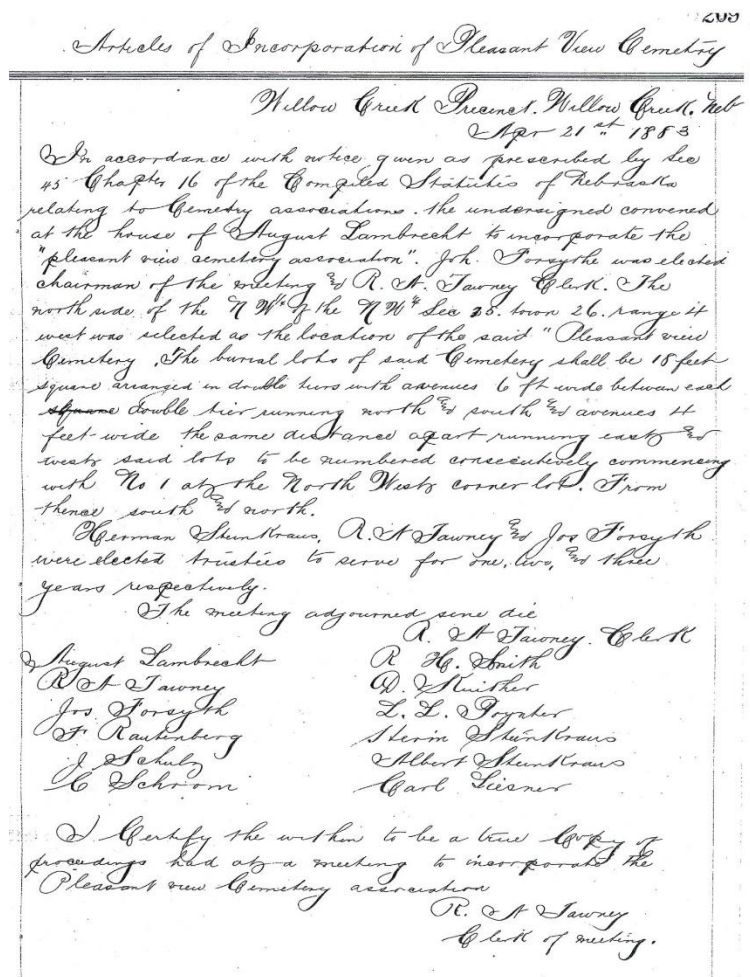 209
Articles of Incorporation of Pleasant View Cemetry
Willow Creek Precinct. Willow Creek. Neb
Apr 21st 1883
In accordance with notice given as prescribed by Sec
45 Chapter 16 of the Compiled Statutis of Nebraska
relating to Cemetry associations. the undersigned convened
at the house of August Lambrecht to incorporate the
"pleasant view cemetery association". Joh. Forsythe was elected
chairman of the meeting and R. A. Tawney Clerk. The
north side of the N W¼ of the N W¼ Sec 35. town 26. range 4
west was selected as the location of the said "Pleasant view
Cemetery. The burial lots of said Cemetery shall be 18 feet
square arranged in double tiers with avenues 6 ft wide betwean each
square double tier running north and south and avenues 4
feet wide the same distance apart running east and
west said lots to be numbered consecutively commencing
with No 1 at the North West corner lot. From
thence south and north.
Herman Steinkraus, R. A Tawney and Jos Forsyth
were elected trustees to serve for one, two, and three
years respectively.
The meeting adjourned sine die
R. A Tawney. Clerk
August Lambrecht
R A Tawney
Jos Forsyth
F Rautenberg
J Schulz
C Schrom
R H. Smith
D.
L. L. Poynter
Herm Steinkraus
Albert Steinkraus
Carl Liesner
I Certify the within to be a true Copy of
proceedings had at a meeting to incorporate the
Pleasant view Cemetery association
R. A Tawney
Clerk of meeting.